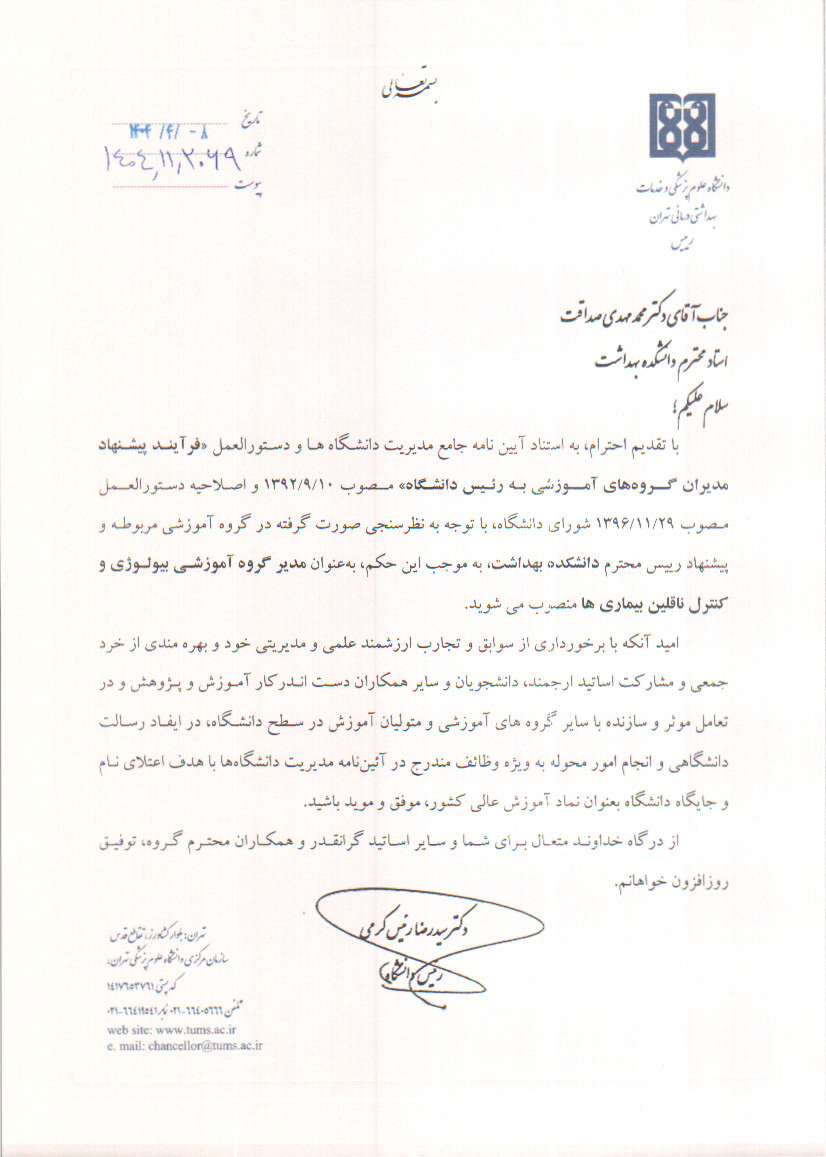 بسمه تعالی
تاریخ ۱۴۰۴/۴/۰۸
شماره ۱۴۰۴,۱۱,۲۰۶۹
پیوست
دانشگاه علوم پزشکی و خدمات
بهداشتی درمانی تهران
رییس
جناب آقای دکتر محمد مهدی صداقت
استاد محترم دانشکده بهداشت
سلام علیکم؛
با تقدیم احترام، به استناد آیین نامه جامع مدیریت دانشگاه ها و دستورالعمل «فرآیند پیشنهاد
مدیران گروه‌های آموزشی به رئیس دانشگاه» مصوب ۱۳۹۲/۹/۱۰ و اصلاحیه دستورالعمل
مصوب ۱۳۹۶/۱۱/۲۹ شورای دانشگاه، با توجه به نظرسنجی صورت گرفته در گروه آموزشی مربوطه و
پیشنهاد رییس محترم دانشکده بهداشت، به موجب این حکم، به‌عنوان مدیر گروه آموزشی بیولوژی و
کنترل ناقلین بیماری ها منصوب می شوید.
امید آنکه با برخورداری از سوابق و تجارب ارزشمند علمی و مدیریتی خود و بهره مندی از خرد
جمعی و مشارکت اساتید ارجمند، دانشجویان و سایر همکاران دست اندرکار آموزش و پژوهش و در
تعامل موثر و سازنده با سایر گروه های آموزشی و متولیان آموزش در سطح دانشگاه، در ایفاد رسالت
دانشگاهی و انجام امور محوله به ویژه وظائف مندرج در آئین‌نامه مدیریت دانشگاه‌ها با هدف اعتلای نام
و جایگاه دانشگاه بعنوان نماد آموزش عالی کشور، موفق و موید باشید.
از درگاه خداوند متعال برای شما و سایر اساتید گرانقدر و همکاران محترم گروه، توفیق
روزافزون خواهانم.
دکتر سید رضا رئیس کرمی
رئیس دانشگاه
تهران: بلوار کشاورز، تقاطع قدس
سازمان مرکزی دانشگاه علوم پزشکی تهران،
کد پستی ۱۴۱۷۶۵۳۷۶۱
تلفن ۶۶۴۰۵۶۶۶-۰۲۱ نمابر ۶۶۴۱۹۵۴۱-۰۲۱
web site: www.tums.ac.ir
e. mail: chancellor@tums.ac.ir